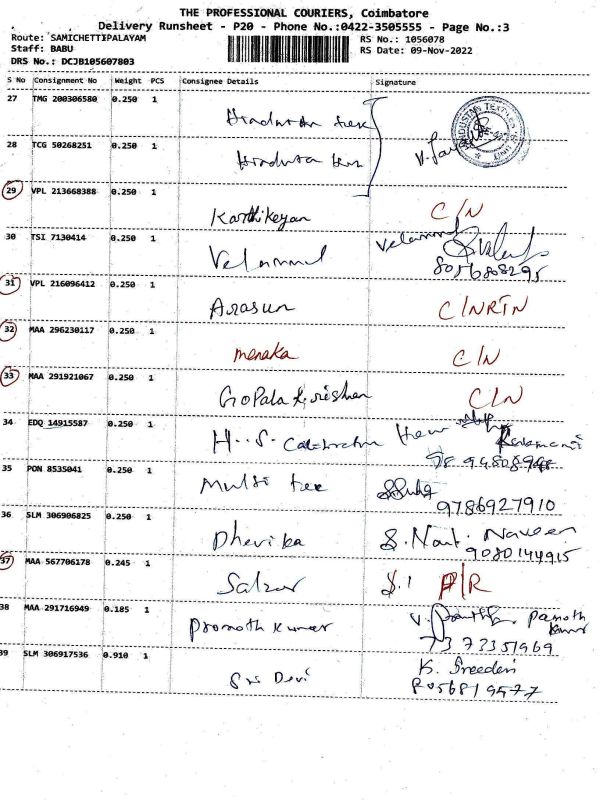 THE PROFESSIONAL COURIERS, Coimbatore
Delivery Runsheet - P20 - Phone No.:0422-3505555 - Page No.:3
Route: SAMICHETTIPALAYAM RS No.: 1056078
Staff: BABU RS Date: 09-Nov-2022
DRS No.: DCJB105607803
S No Consignment No Weight PCS Consignee Details Signature
27 TMG 200306580 0.250 1
28 TCG 50268251 0.250 1
29 VPL 213668388 0.250 1 Karthikeyan C/N
30 TSI 7130414 0.250 1 Velammal Velammal
8056808295
31 VPL 216096412 0.250 1 Arasun C/NRTN
32 MAA 296230117 0.250 1 menaka C/N
33 MAA 291921067 0.250 1 GoPala Krishnan C/N
34 EDQ 14915587 0.250 1
35 PON 8535041 0.250 1 Multi tex
9786927910
36 SLM 306906825 0.250 1 Dhevika Naveen
9080144915
37 MAA 567706178 0.245 1
38 MAA 291716949 0.185 1 Promoth Kumar V.
7373351969
39 SLM 306917536 0.910 1 Sri Devi K. Sreedevi
8056819577